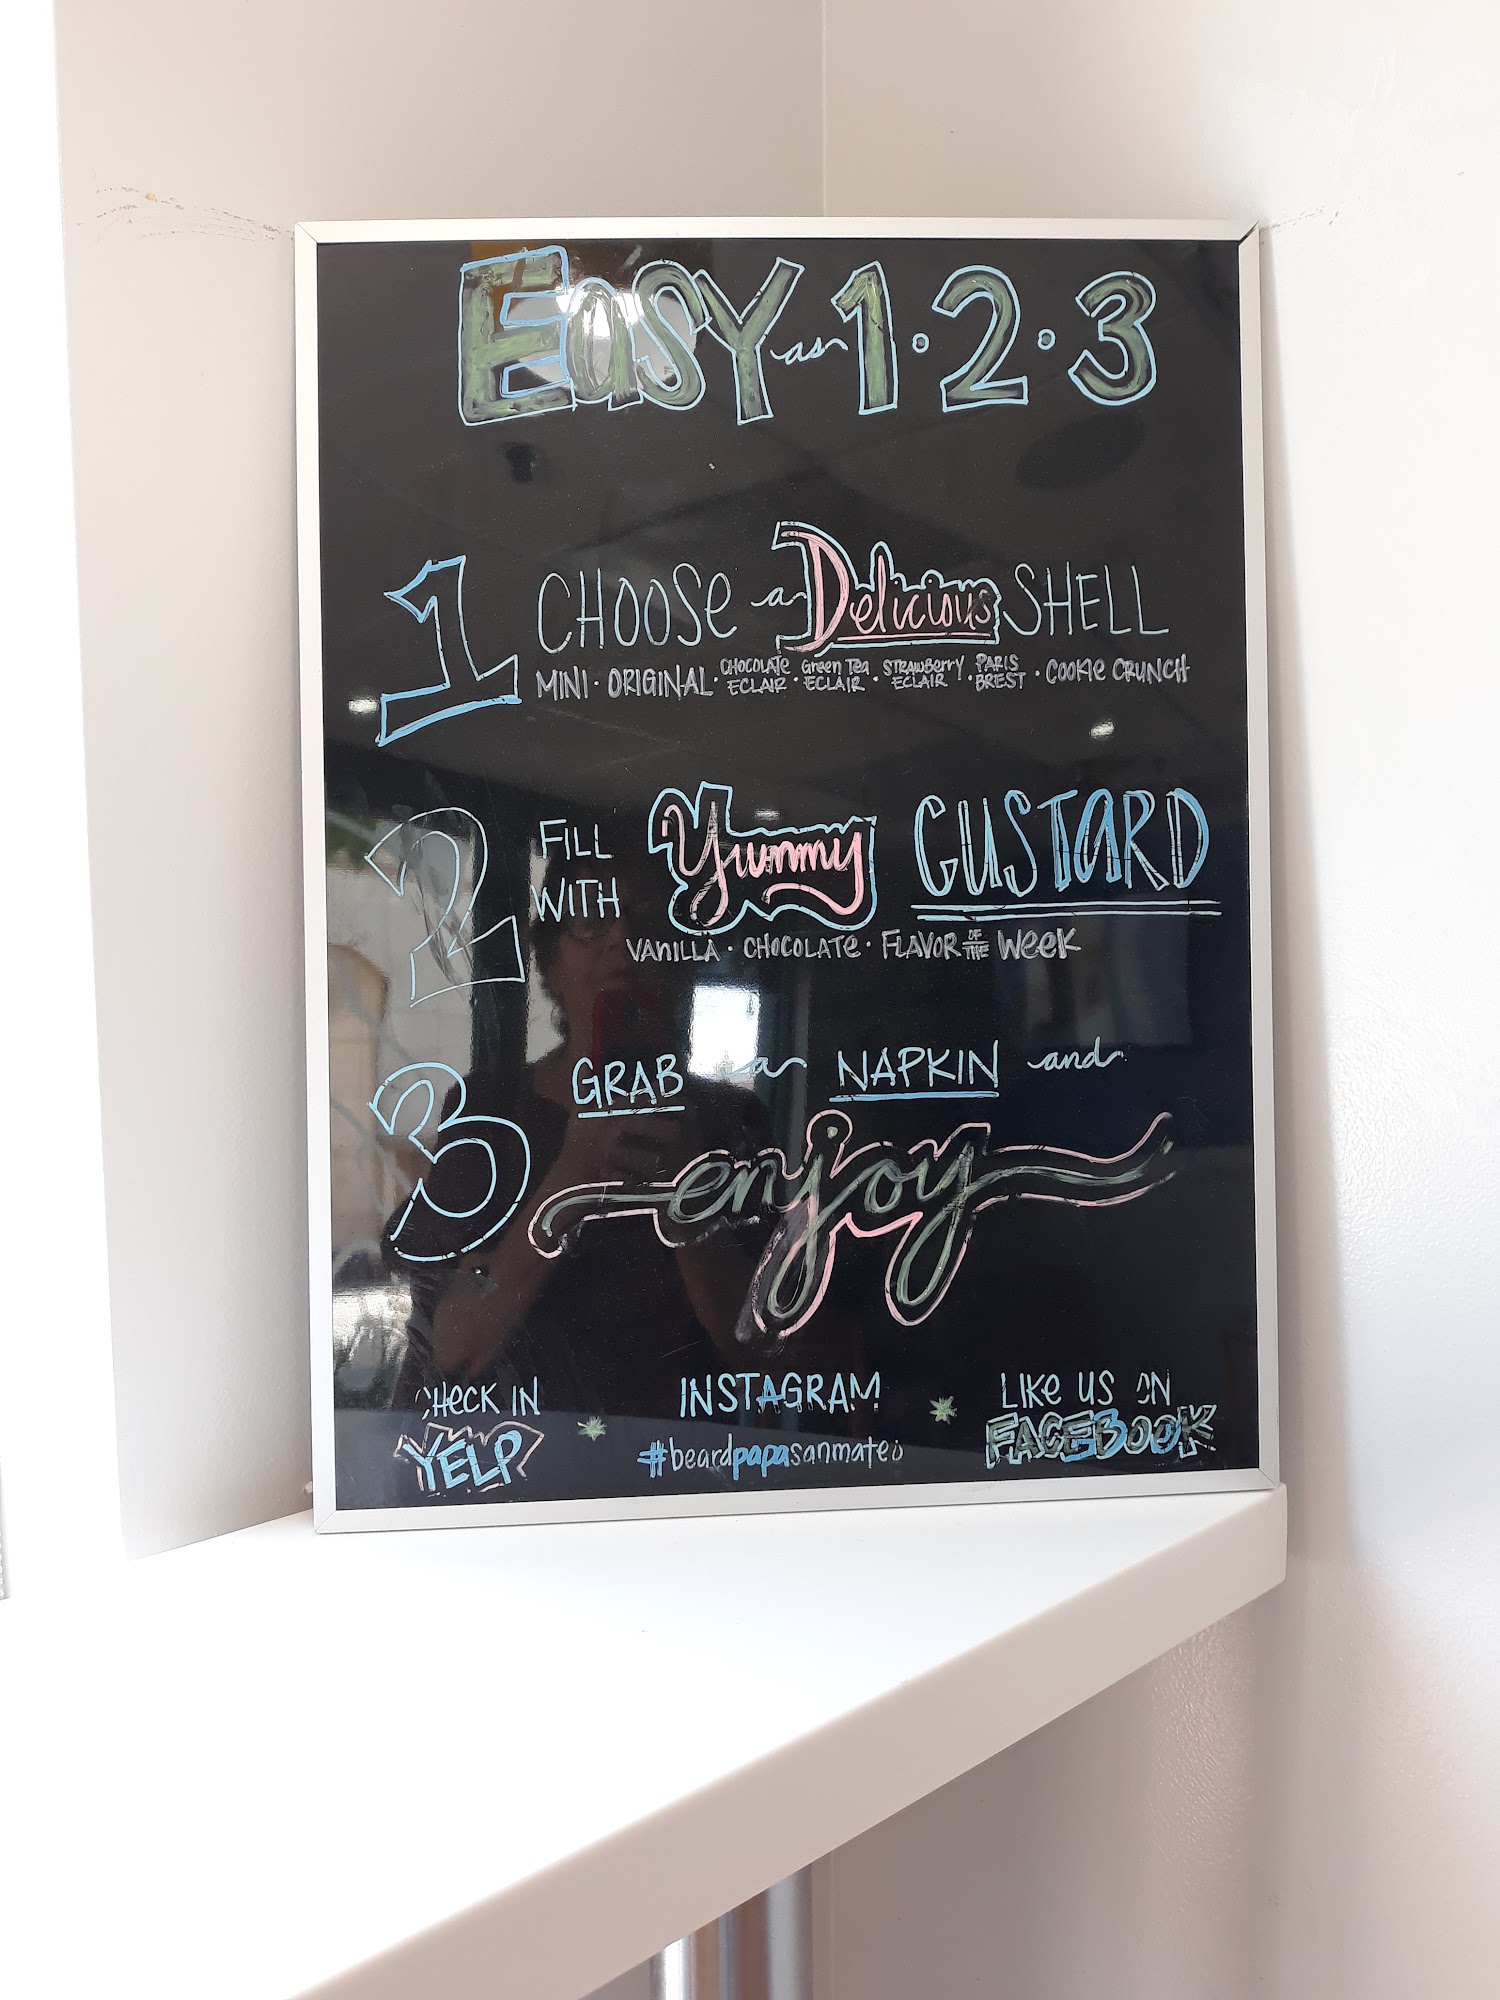 EASY as 1·2·3
1 CHOOSE a Delicious SHELL
MINI · ORIGINAL · CHOCOLATE ECLAIR · Green Tea ECLAIR · STRAWBERRY ECLAIR · PARIS BREST · COOKIE CRUNCH
2 FILL WITH Yummy CUSTARD
VANILLA · CHOCOLATE · FLAVOR OF THE WEEK
3 GRAB a NAPKIN and
enjoy
CHECK IN
YELP
INSTAGRAM
#beardpapasanmateo
LIKE US ON
FACEBOOK